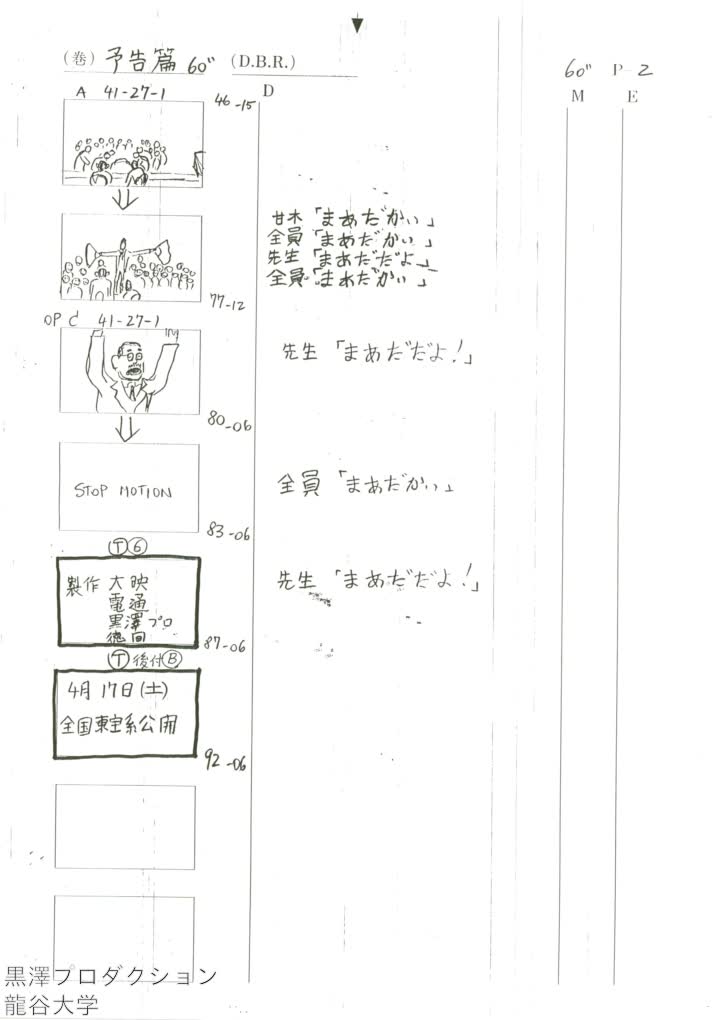 (巻) 予告篇 60" (D.B.R.)
60" P-2
A 41-27-1
46-15
D
M E
甘木「まあだかい」
全員「まあだかい」
先生「まあだだよ」
全員「まあだかい」
77-12
OP C' 41-27-1
先生「まあだだよ!」
80-06
STOP MOTION
全員「まあだかい」
83-06
T 6
製作 大映
電通
黒澤プロ
徳間
先生「まあだだよ!」
87-06
T 後付 B
4月17日(土)
全国東宝系公開
92-06
黒澤プロダクション
龍谷大学